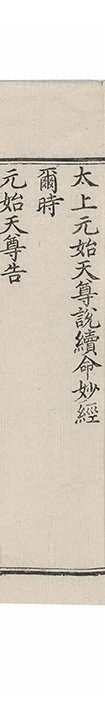 太上元始天尊說續命妙經
爾時
元始天尊告